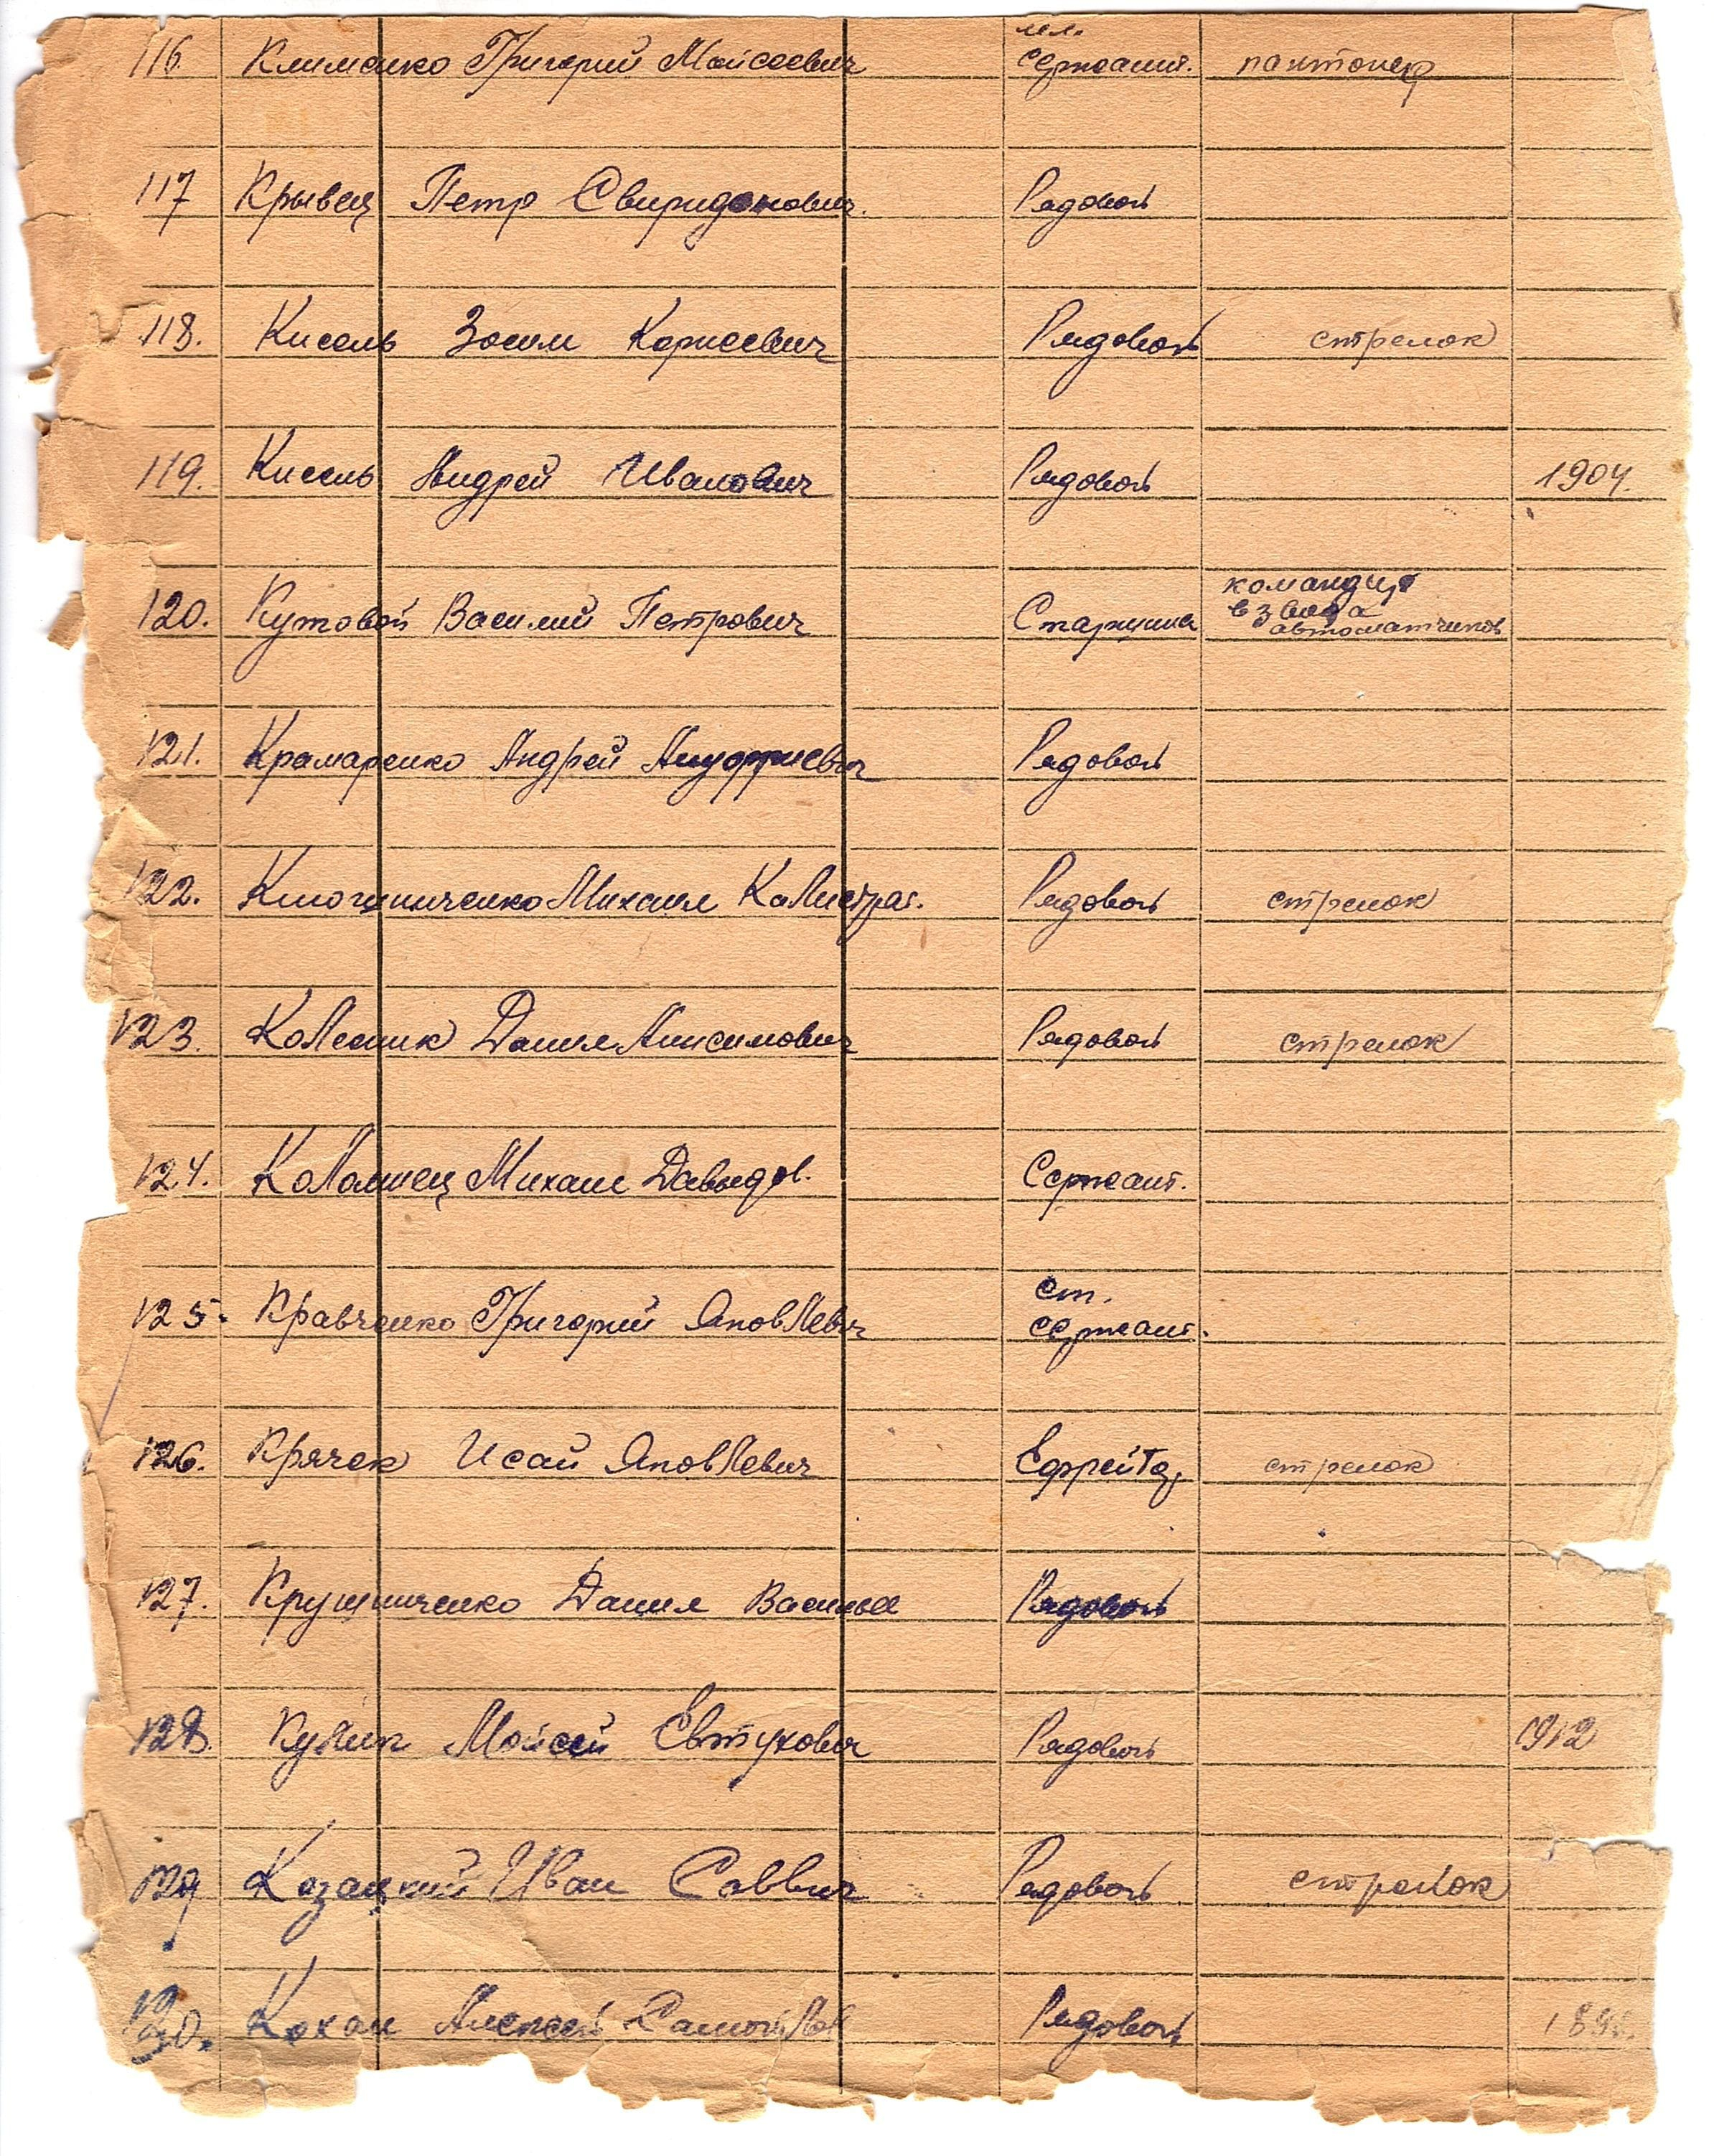 116. Клименко Григорий Мойсеевич мл. сержант. понтонер
117 Крывец Петр Свиридонович. Рядовой
118. Кисель Зосим Корнеевич Рядовой стрелок
119. Кисель Андрей Иванович Рядовой 1904.
120. Кутовой Василий Петрович Старшина командир
взвода
автоматчиков
121. Крамаренко Андрей Ануфриевич Рядовой
122. Михаил Калистрат. Рядовой стрелок
123. Колесник Данил Анисимович Рядовой стрелок
124. Коломиец Михаил Давыдов. Сержант.
125. Кравченко Григорий Яковлевич ст.
сержант.
126. Крячек Исай Яковлевич Ефрейтор стрелок
127. Крушниченко Данил Василье Рядовой
128. Кулик Мойсей Евтухович Рядовой 1912
129 Козацкий Иван Саввич Рядовой стрелок
130. Кохан Алексей Рядовой